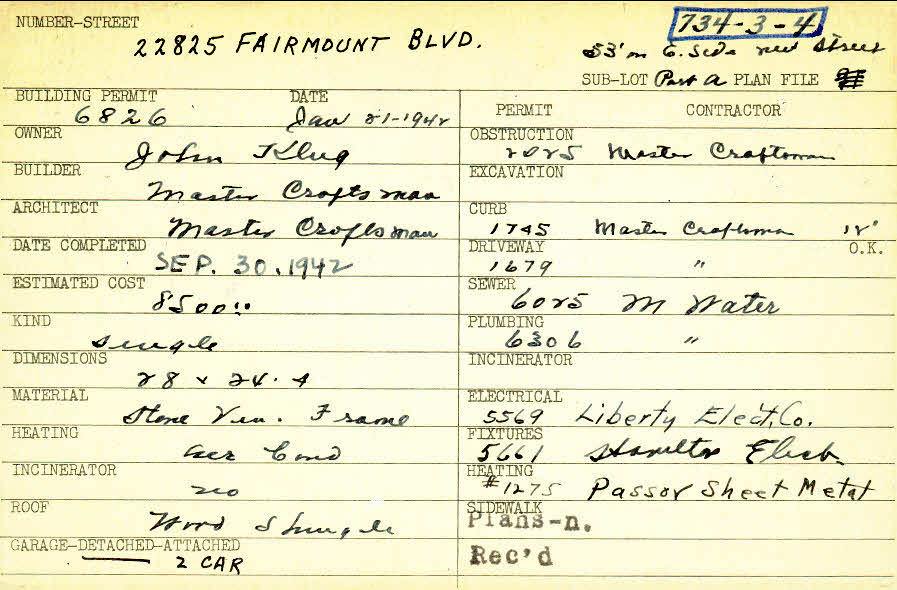 NUMBER-STREET
22825 FAIRMOUNT BLVD.
734-3-4
53' on E. Side new Street
SUB-LOT Part A PLAN FILE
BUILDING PERMIT DATE
6826 Jan 21-1942
OWNER
John Klug
BUILDER
Master Craftsman
ARCHITECT
Master Craftsman
DATE COMPLETED
SEP. 30. 1942
ESTIMATED COST
8500.00
KIND
Single
DIMENSIONS
28 x 24.4
MATERIAL
Stone Ven. Frame
HEATING
air Cond
INCINERATOR
no
ROOF
Wood Shingle
GARAGE-DETACHED-ATTACHED
2 CAR
PERMIT CONTRACTOR
OBSTRUCTION
2025 Master Craftsman
EXCAVATION
CURB
1745 Master Craftsman 12'
DRIVEWAY O.K.
1679 "
SEWER
6025 M Water
PLUMBING
6306 "
INCINERATOR
ELECTRICAL
5569 Liberty Elect. Co.
FIXTURES
5661 Hamilton Elect.
HEATING
#1275 Passov Sheet Metal
SIDEWALK
Plans-n.
Rec'd